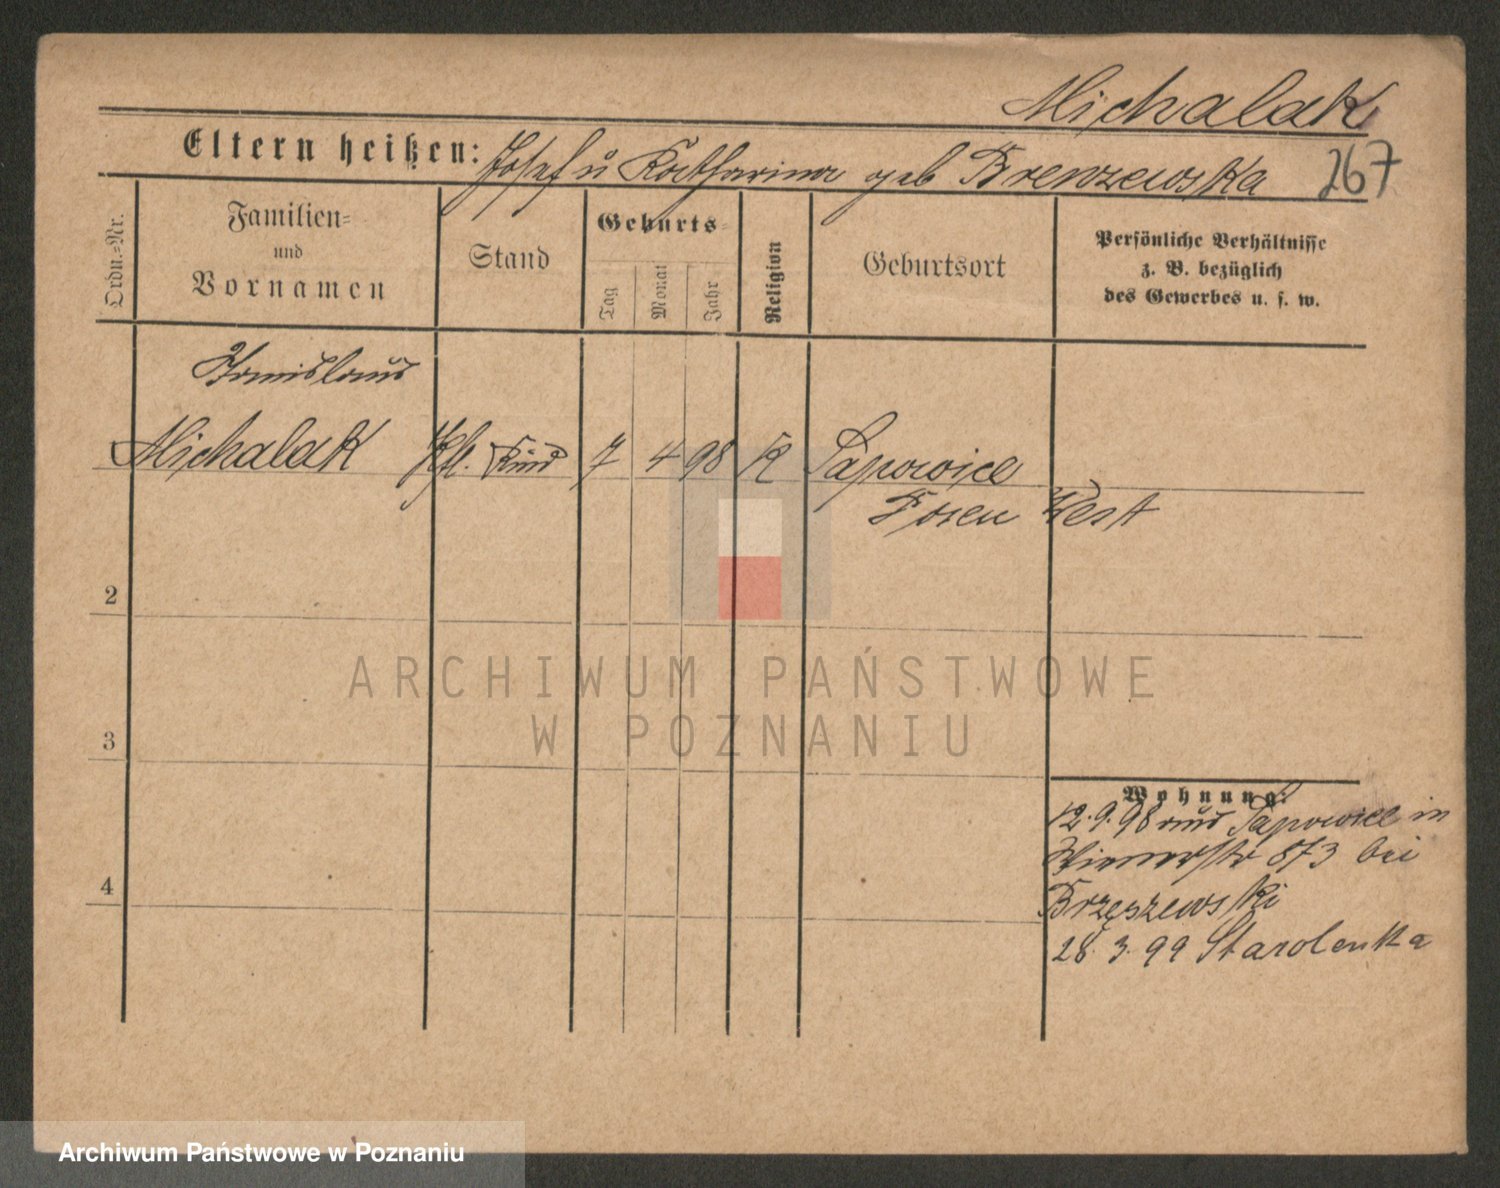 Michalak
Eltern heißen: Josef u Katharina geb Brenzewska 267
Ordn.=Nr.
Familien=
und
Vornamen
Stand
Geburts=
Tag
Monat
Jahr
Religion
Geburtsort
Persönliche Verhältnisse
z. B. bezüglich
des Gewerbes u. s. w.
Stanislaus
Michalak Kind 7 4 98 K Sapowice
Posen West
2
3
4
Wohnung:
12.9.98 aus Sapowice in
873 bei
Brzęszewski
28.3.99 Starolenka
ARCHIWUM PAŃSTWOWE
W POZNANIU
Archiwum Państwowe w Poznaniu